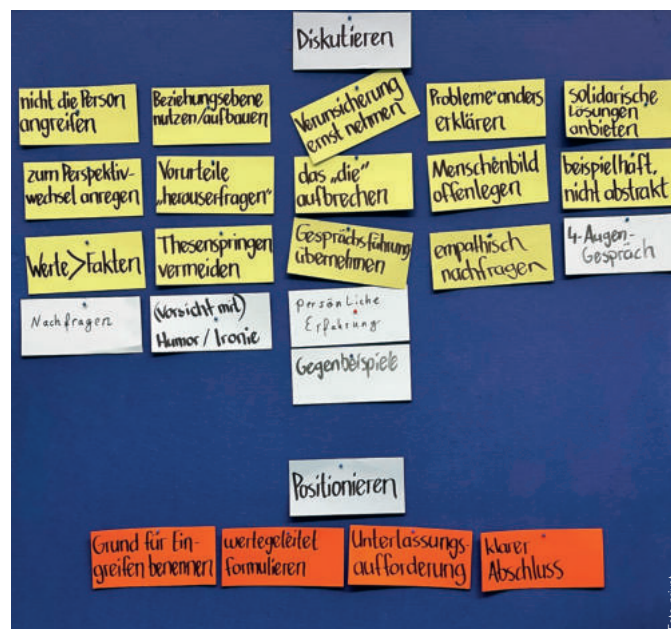 Diskutieren
nicht die Person
angreifen
Beziehungsebene
nutzen/aufbauen
Verunsicherung
ernst nehmen
Probleme anders
erklären
solidarische
Lösungen
anbieten
zum Perspektiv-
wechsel anregen
Vorurteile
„herauserfragen"
das „die"
aufbrechen
Menschenbild
offenlegen
beispielhaft,
nicht abstrakt
Werte>Fakten
Thesenspringen
vermeiden
Gesprächsführung
übernehmen
empathisch
nachfragen
4-Augen-
Gespräch
Nachfragen
(Vorsicht mit)
Humor / Ironie
persönliche
Erfahrung
Gegenbeispiele
Positionieren
Grund für Ein-
greifen benennen
wertegeleitet
formulieren
Unterlassungs-
aufforderung
klarer
Abschluss